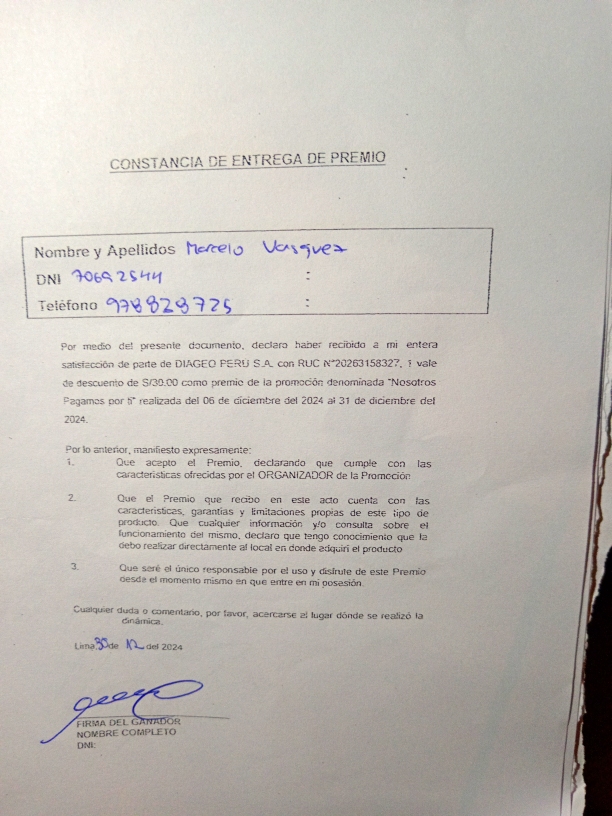 CONSTANCIA DE ENTREGA DE PREMIO
Nombre y Apellidos Marcelo Vasquez
DNI 70692544 :
Teléfono 978828725 :
Por medio del presente documento, declaro haber recibido a mi entera
satisfacción de parte de DIAGEO PERU S.A. con RUC N°20263158327, 1 vale
de descuento de S/30.00 como premio de la promoción denominada "Nosotros
Pagamos por ti" realizada del 06 de diciembre del 2024 al 31 de diciembre del
2024.
Por lo anterior, manifiesto expresamente:
1. Que acepto el Premio, declarando que cumple con las
características ofrecidas por el ORGANIZADOR de la Promoción
2. Que el Premio que recibo en este acto cuenta con las
características, garantías y limitaciones propias de este tipo de
producto. Que cualquier información y/o consulta sobre el
funcionamiento del mismo, declaro que tengo conocimiento que la
debo realizar directamente al local en donde adquirí el producto
3. Que seré el único responsable por el uso y disfrute de este Premio
desde el momento mismo en que entre en mi posesión.
Cualquier duda o comentario, por favor, acercarse al lugar dónde se realizó la
dinámica.
Lima, 30 de 12 del 2024
FIRMA DEL GANADOR
NOMBRE COMPLETO
DNI: